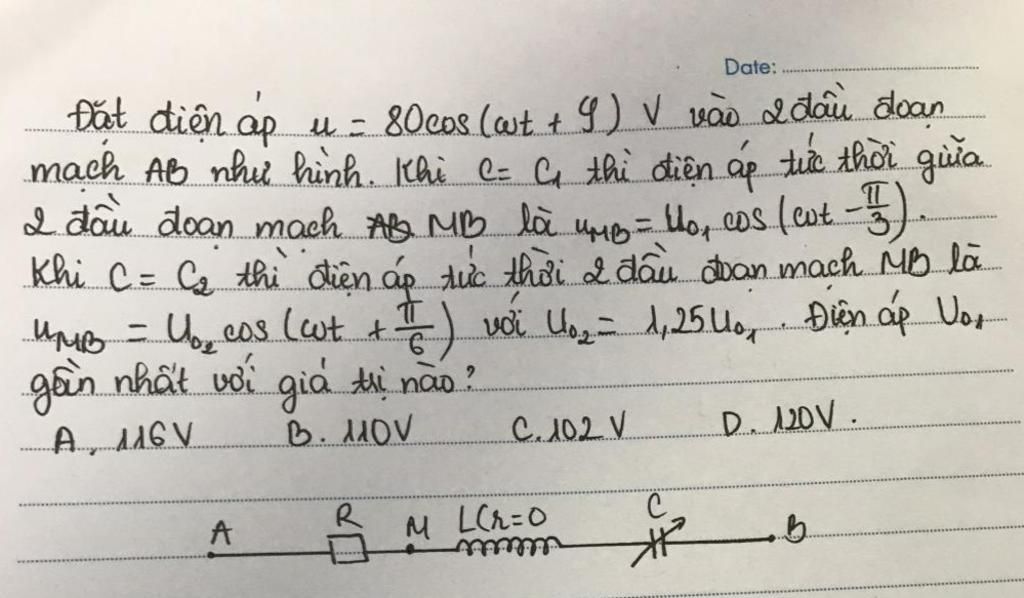 Date:
Đặt điện áp u = 80cos(ωt + φ) V vào 2 đầu đoạn
mạch AB như hình. Khi C = C₁ thì điện áp tức thời giữa
2 đầu đoạn mạch AB MB là u_MB = U₀₁ cos(ωt - π/3).
Khi C = C₂ thì điện áp tức thời 2 đầu đoạn mạch MB là
u_MB = U₀₂ cos(ωt + π/6) với U₀₂ = 1,25U₀₁. Điện áp U₀₁
gần nhất với giá trị nào?
A. 116V B. 110V C. 102 V D. 120V.
A R M L(r=0 C B